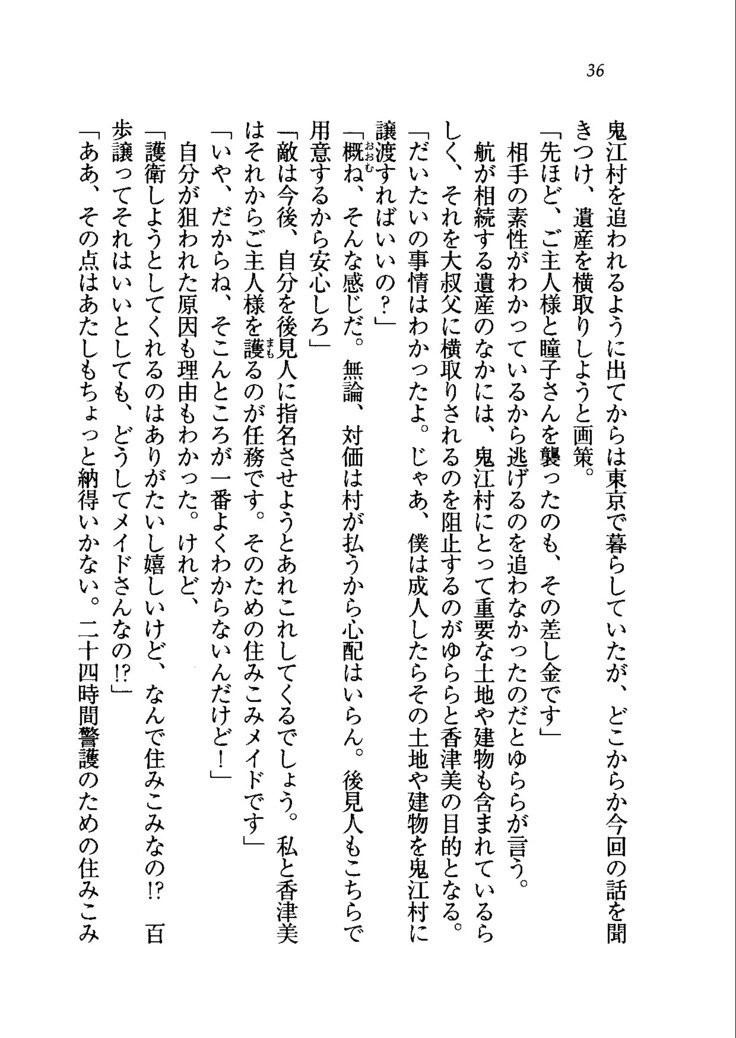 36
鬼江村を追われるように出てからは東京で暮らしていたが、どこからか今回の話を聞
きつけ、遺産を横取りしようと画策。
「先ほど、ご主人様と瞳子さんを襲ったのも、その差し金です」
　相手の素性がわかっているから逃げるのを追わなかったのだとゆららが言う。
　航が相続する遺産のなかには、鬼江村にとって重要な土地や建物も含まれているら
しく、それを大叔父に横取りされるのを阻止するのがゆららと香津美の目的となる。
「だいたいの事情はわかったよ。じゃあ、僕は成人したらその土地や建物を鬼江村に
譲渡すればいいの？」
「概ね、そんな感じだ。無論、対価は村が払うから心配はいらん。後見人もこちらで
用意するから安心しろ」
「敵は今後、自分を後見人に指名させようとあれこれしてくるでしょう。私と香津美
はそれからご主人様を護るのが任務です。そのための住みこみメイドです」
「いや、だからね、そこんところが一番よくわからないんだけど！」
　自分が狙われた原因も理由もわかった。けれど、
「護衛しようとしてくれるのはありがたいし嬉しいけど、なんで住みこみなの!?　百
歩譲ってそれはいいとしても、どうしてメイドさんなの!?」
「ああ、その点はあたしもちょっと納得いかない。二十四時間警護のための住みこみ